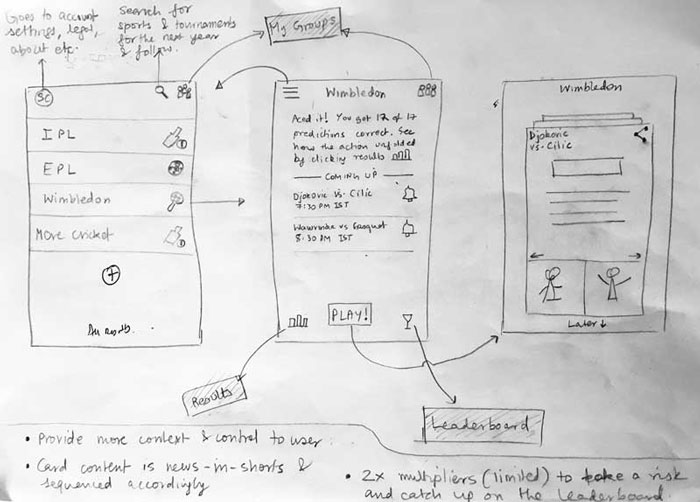 Goes to account
settings, legal,
about etc.
Search for
sports & tournaments
for the next year
& follow.
My Groups
SC
IPL
EPL
Wimbledon
More Cricket
+
Wimbledon
Aced it! You got 12 of 17
predictions correct. See
how the action unfolded
by clicking results
COMING UP
Djokovic Vs. Cilic
7:30 PM IST
Wawrinka vs Gasquet
8:30 AM IST
PLAY!
Wimbledon
Djokovic
vs. Cilic
Later ↓
Results
Leaderboard
• Provide more context & control to user.
• Card content is news-in-shorts &
sequenced accordingly
• 2x multipliers (limited) to take a risk
and catch up on the leaderboard.